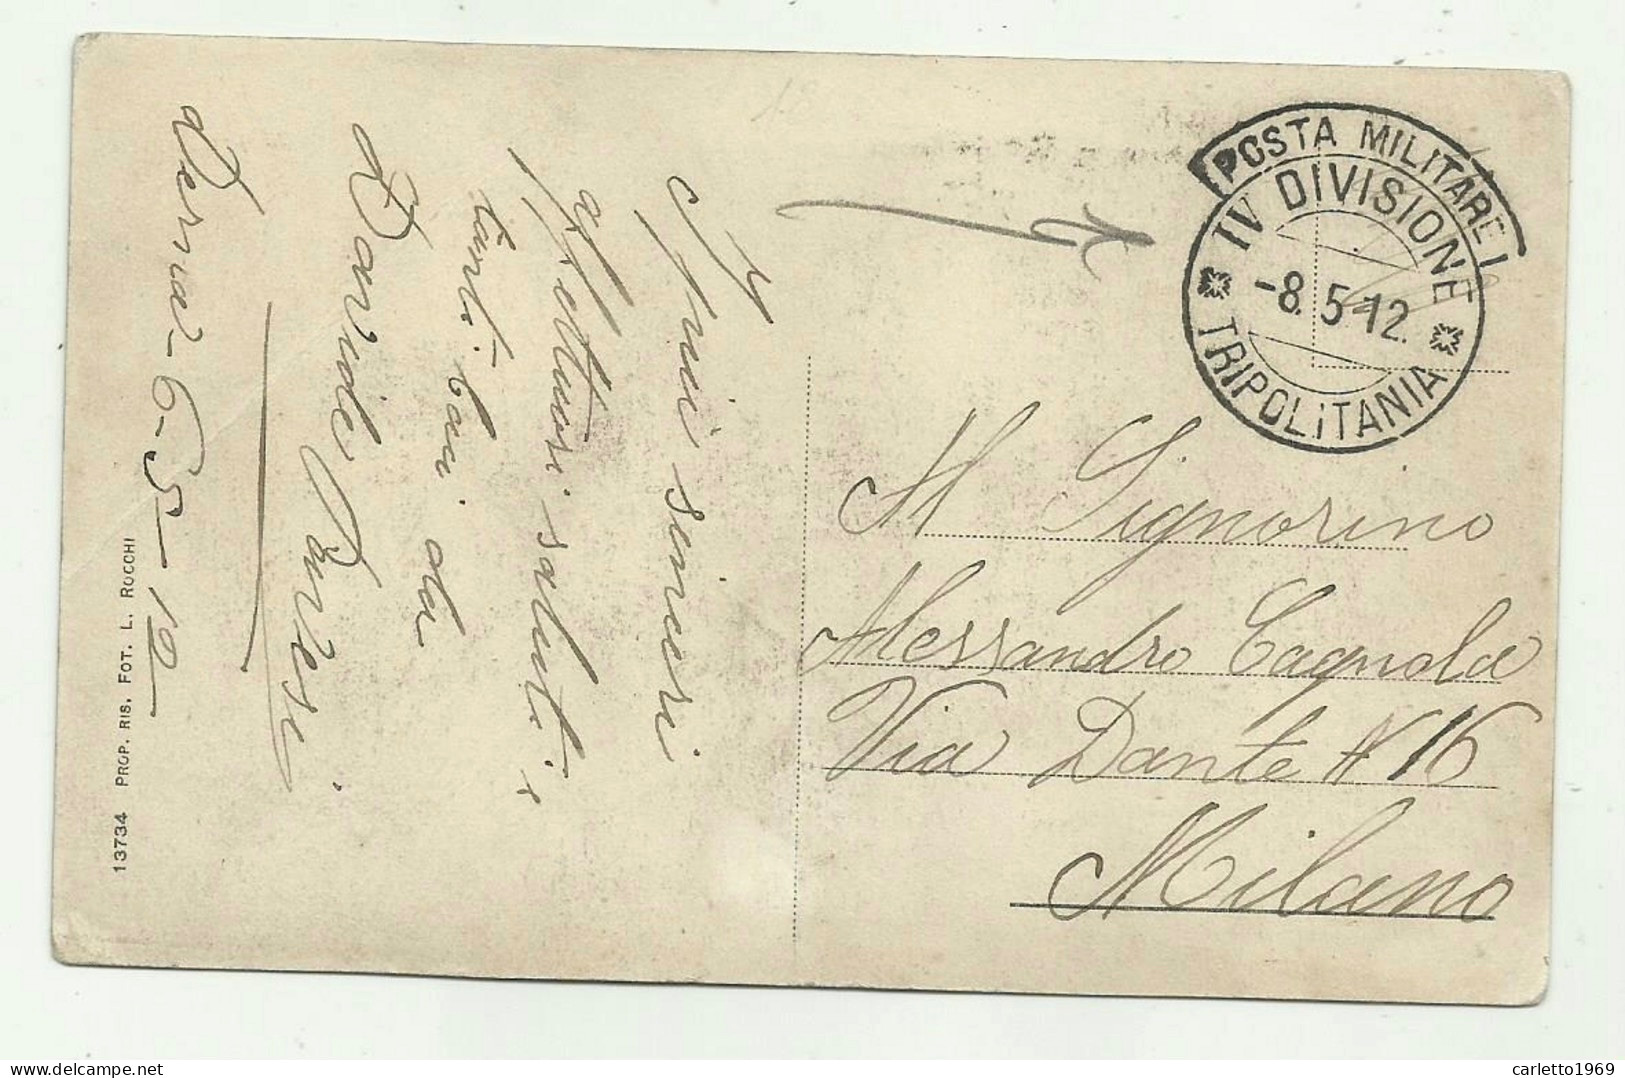 I miei sinceri
affettuosi saluti,
tanti baci da
Davide Parvesi
Derna 6-5-12
13734 PROP. RIS. FOT. L. ROCCHI
POSTA MILITARE
IV DIVISIONE
-8.5.12.
TRIPOLITANIA
Al Signorino
Alessandro Cagnola
Via Dante N 16
Milano
delcampe.net
carletto1969